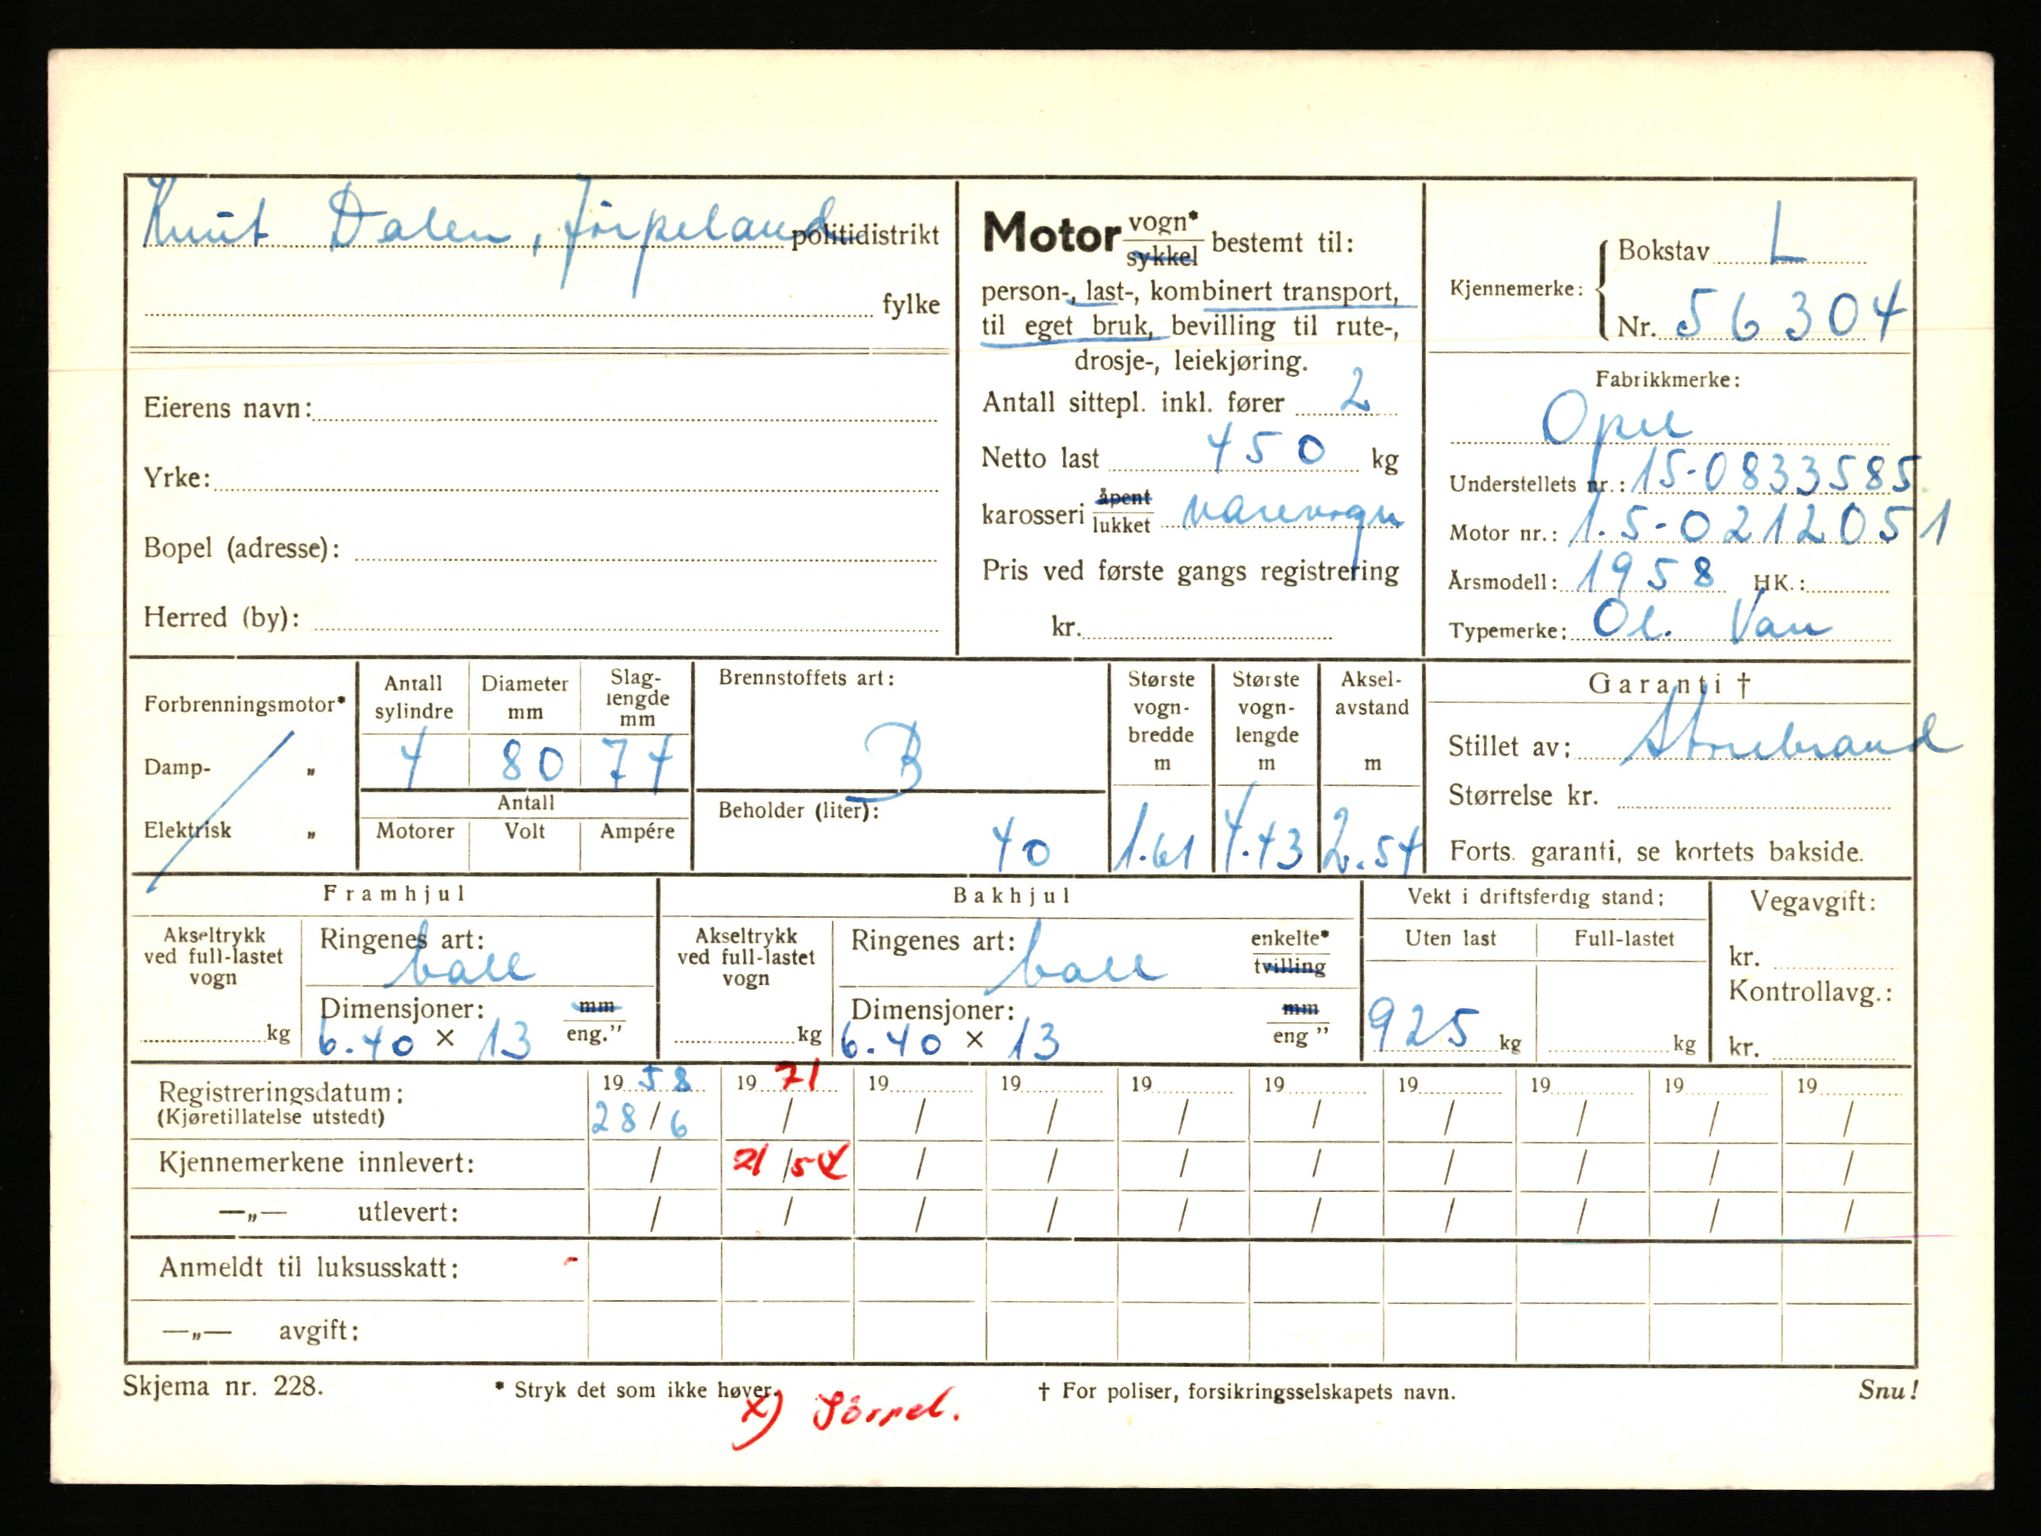 Knut Dalen, Jørpeland politidistrikt
fylke
Eierens navn:
Yrke:
Bopel (adresse):
Herred (by):
Motor vogn*
sykkel bestemt til:
person-, last-, kombinert transport,
til eget bruk, bevilling til rute-,
drosje-, leiekjøring.
Antall sittepl. inkl. fører 2
Netto last 450 kg
karosseri åpent
lukket varevogn
Pris ved første gangs registrering
kr.
Kjennemerke:
Bokstav L
Nr. 56304
Fabrikkmerke:
Opel
Understellets nr.: 15-0833585
Motor nr.: 1.5-0212051
Årsmodell: 1958 HK.:
Typemerke: Ol. Van
Forbrenningsmotor*
Damp- „
Elektrisk „
Antall sylindre
4
Diameter mm
80
Slag-
lengde
mm
74
Antall
Motorer Volt Ampére
Brennstoffets art:
B
Beholder (liter):
40
Største
vogn-
bredde
m
1.61
Største
vogn-
lengde
m
4.43
Aksel-
avstand
m
2.54
Garanti †
Stillet av: Storebrand
Størrelse kr.
Forts. garanti, se kortets bakside.
Framhjul
Akseltrykk
ved full-lastet
vogn
kg
Ringenes art:
ball
Dimensjoner: mm
6.40 × 13 eng."
Bakhjul
Akseltrykk
ved full-lastet
vogn
kg
Ringenes art: enkelte*
ball tvilling
Dimensjoner: mm
6.40 × 13 eng "
Vekt i driftsferdig stand:
Uten last Full-lastet
925 kg kg
Vegavgift:
kr.
Kontrollavg.:
kr.
Registreringsdatum: 19 58 19 71 19 19 19 19 19 19 19 19
(Kjøretillatelse utstedt) 28/6 / / / / / / / / /
Kjennemerkene innlevert: / 21/5 / / / / / / / /
—„— utlevert: / / / / / / / / / /
Anmeldt til luksusskatt: -
—„— avgift:
Skjema nr. 228. * Stryk det som ikke høver. † For poliser, forsikringsselskapets navn. Snu!
x)